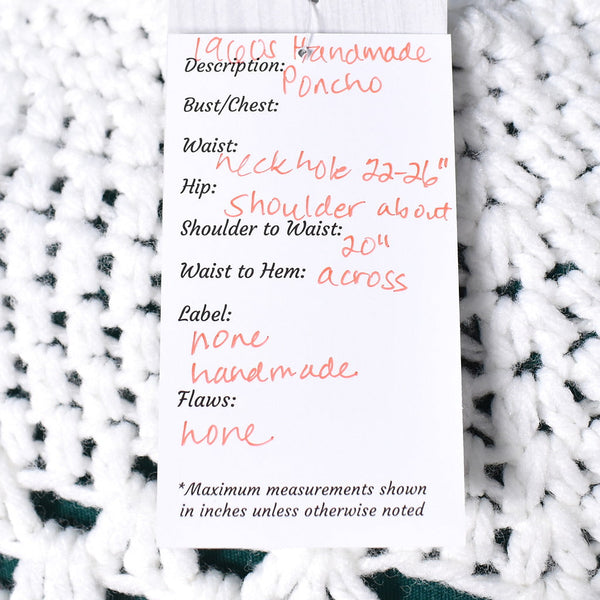 1960s Handmade
Description:
Poncho
Bust/Chest:
Waist:
neckhole 22-26"
Hip:
Shoulder about
Shoulder to Waist:
20"
Waist to Hem: across
Label:
none
handmade
Flaws:
none
*Maximum measurements shown
in inches unless otherwise noted